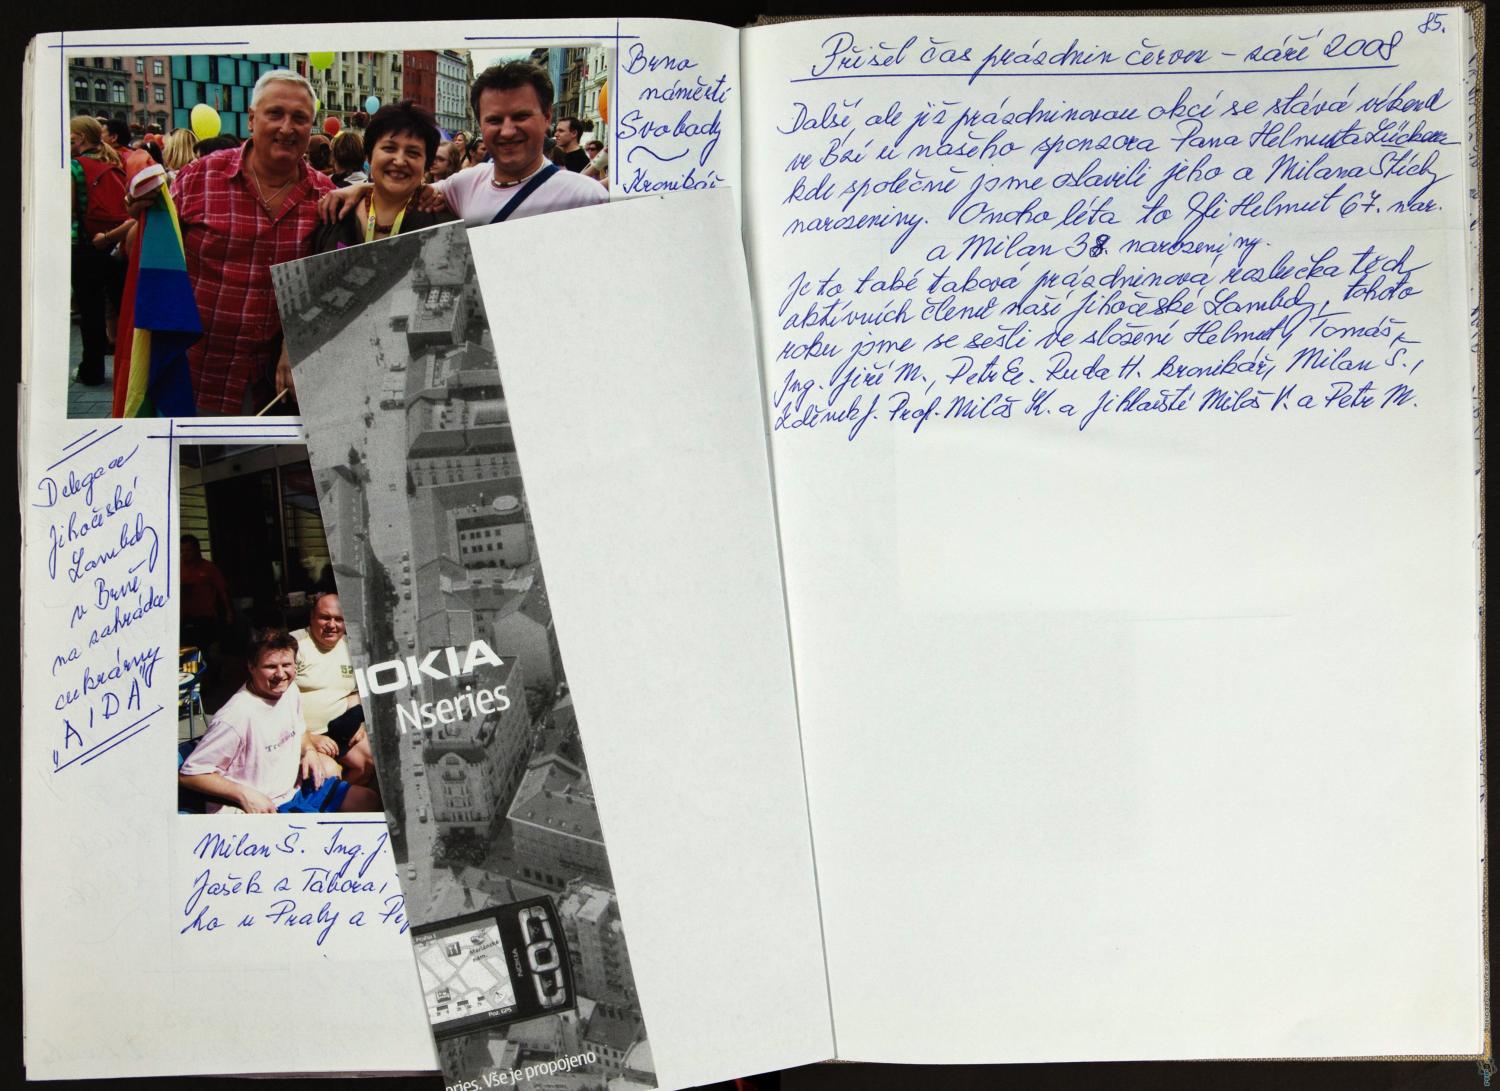 Brno
náměstí
Svobody
Kronikář
Delegace
Jihočeské
Lambdy
v Brně
na zahrádce
cukrárny
"AIDA"
Milan Š. Ing. J.
Jašek z Tábora,
ho u Prahy a
NOKIA
Nseries
Mariánské
nám.
NOKIA
Poz. GPS
eries. Vše je propojeno
85.
Přišel čas prázdnin červen - září 2008
Další, ale již prázdninovou akcí se stává víkend
ve Bzí u našeho sponzora Pana Helmuta
kde společně jsme oslavili jeho a Milana Štichy
narozeniny. Onoho léta to byli Helmut 67. nar.
a Milan 38. narozeniny.
Je to také taková prázdninová rozlučka těch
aktivních členů naší Jihočeské Lambdy, tohoto
roku jsme se sešli ve složení Helmut, Tomáš,
Ing. Jiří M., Petr Ruda H. kronikář, Milan Š.,
Zdeněk J. Prof. Miloš K. a Jihlavští Miloš V. a Petr M.